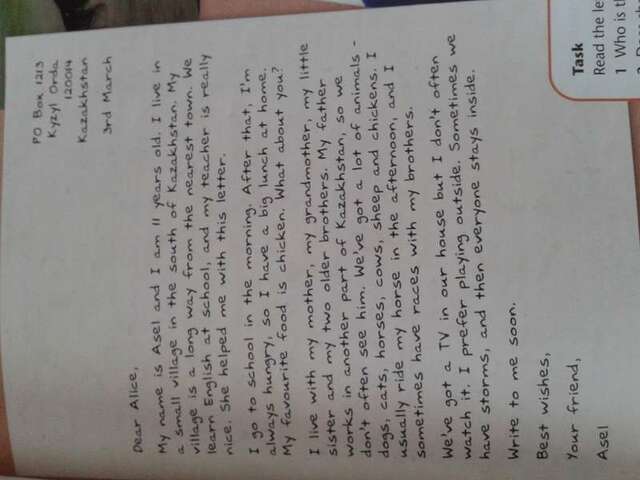 PO Box 1213
Kyzyl Orda
120014
Kazakhstan
3rd March
Dear Alice,
My name is Asel and I am 11 years old. I live in
a small village in the south of Kazakhstan. My
village is a long way from the nearest town. We
learn English at school, and my teacher is really
nice. She helped me with this letter.
I go to school in the morning. After that, I'm
always hungry, so I have a big lunch at home.
My favourite food is chicken. What about you?
I live with my mother, my grandmother, my little
sister and my two older brothers. My father
works in another part of Kazakhstan, so we
don't often see him. We've got a lot of animals -
dogs, cats, horses, cows, sheep and chickens. I
usually ride my horse in the afternoon, and I
sometimes have races with my brothers.
We've got a TV in our house but I don't often
watch it. I prefer playing outside. Sometimes we
have storms, and then everyone stays inside.
Write to me soon.
Best wishes,
Your friend,
Asel
Task
Read the le
1 Who is th